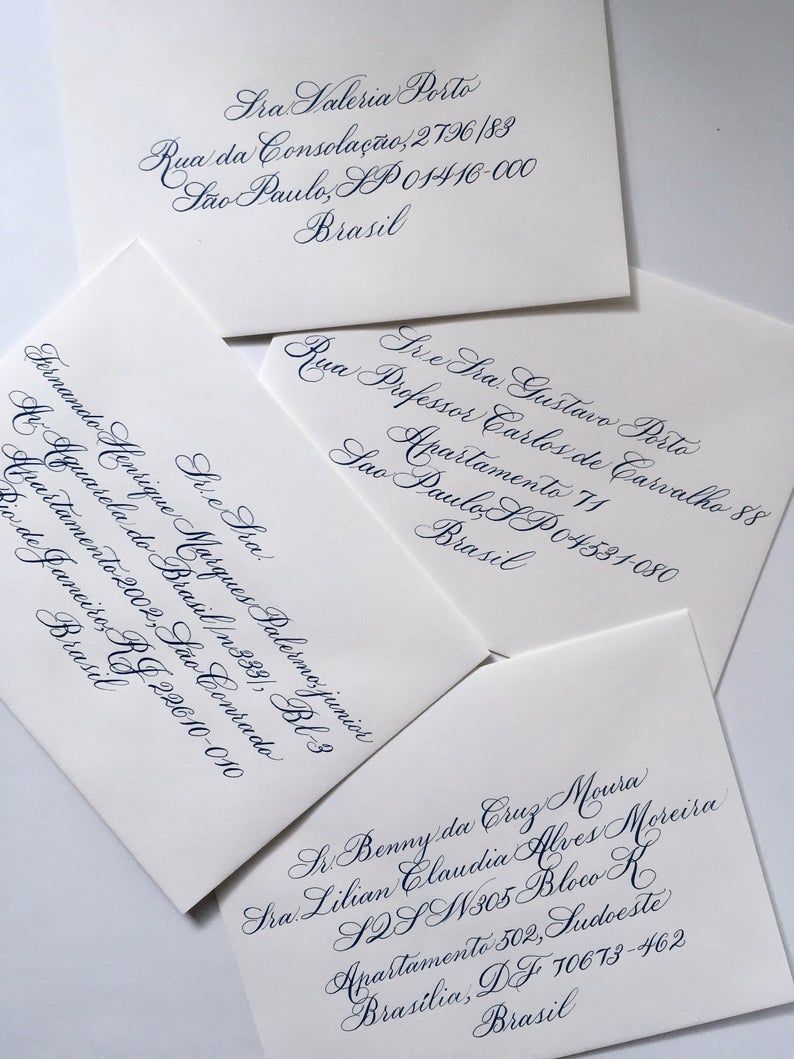 Sra. Valeria Porto
Rua da Consolação, 2796/83
São Paulo, SP 01416-000
Brasil
Sr. e Sra. Gustavo Porto
Rua Professor Carlos de Carvalho 88
Apartamento 71
Sao Paulo, SP 04531-080
Brasil
Sr. e Sra.
Fernando Henrique Marques Palermo, junior
Av Aquarela do Brasil/n333/, Bl-3
Apartamento 2002, São Conrado
Rio de Janeiro, RJ 22610-010
Brasil
Sr. Benny da Cruz Moura
Sra. Lilian Claudia Alves Moreira
SQSW305 Bloco K
Apartamento 502, Sudoeste
Brasília, DF 70673-462
Brasil